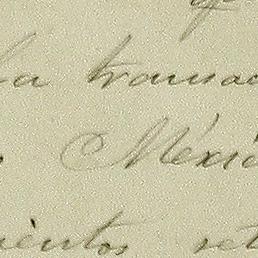 la transac
México
mientos ret